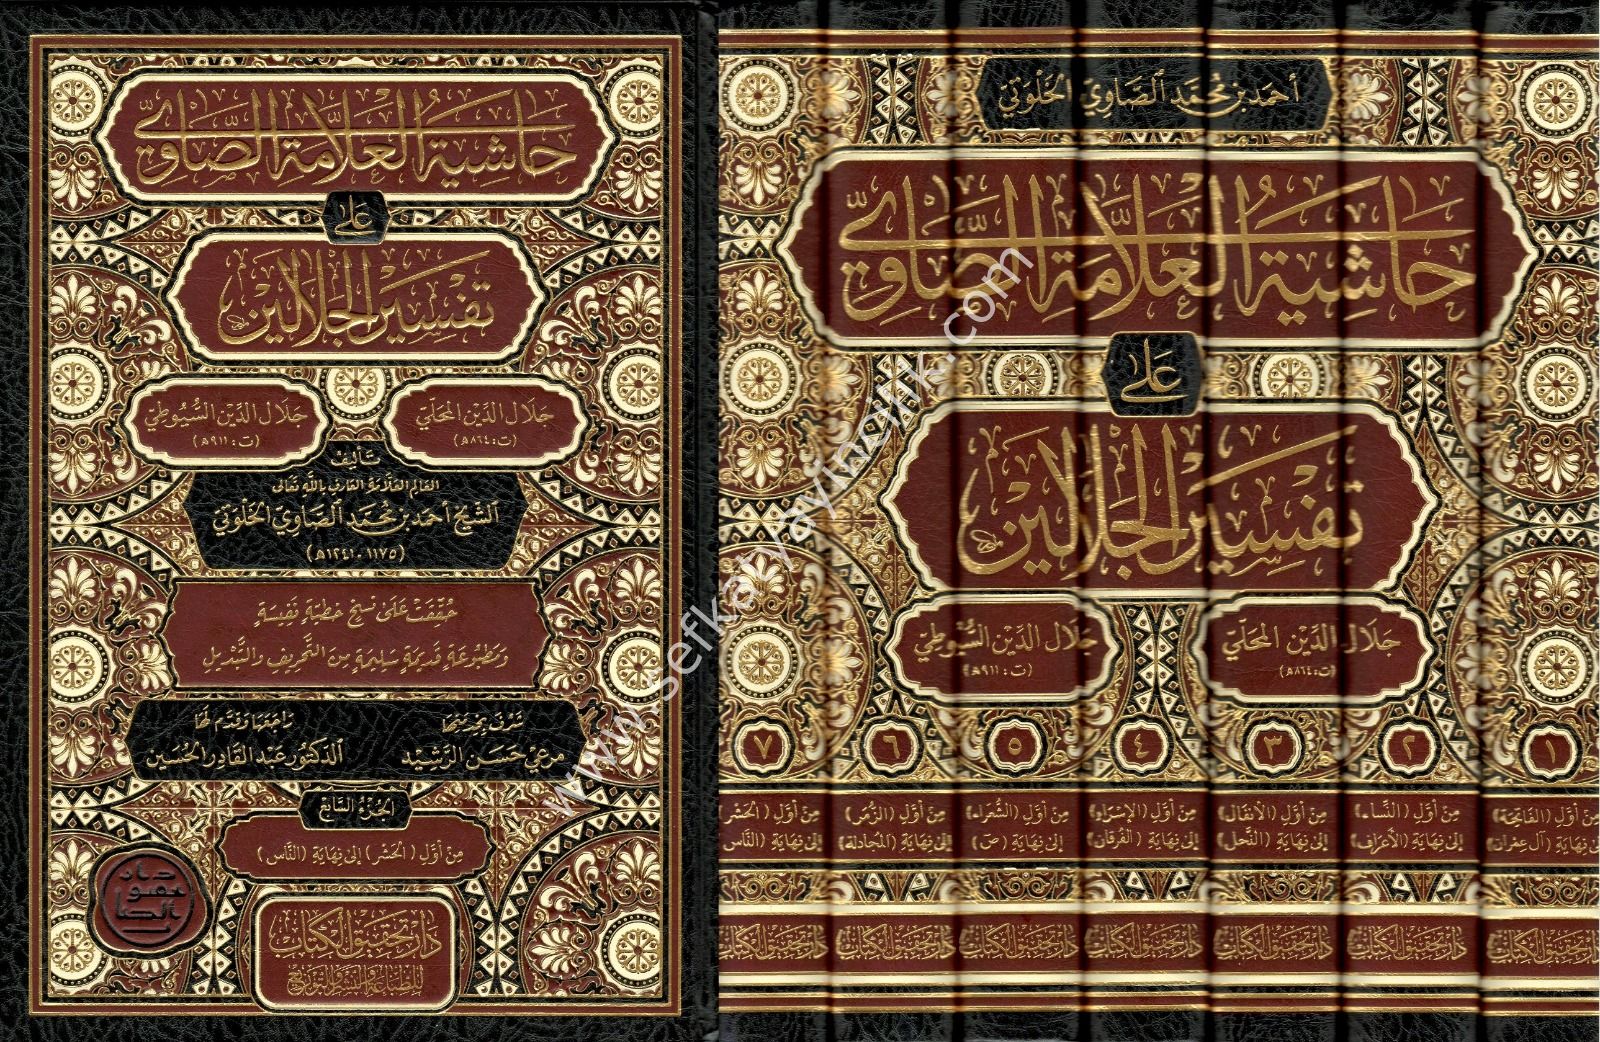 حاشية العلامة الصاوي
على
تفسير الجلالين
جلال الدين المحلي
(ت: ٨٦٤هـ)
جلال الدين السيوطي
(ت: ٩١١هـ)
تأليف
العالم العلامة العارف بالله تعالى
الشيخ أحمد بن محمد الصاوي الخلوتي
(١١٧٥-١٢٤١هـ)
حُقِّقَتْ عَلَى نُسَخٍ خَطِّيَّةٍ نَفِيسَةٍ
وَمَطبُوعَةٍ قَدِيمَةٍ سَلِيمَةٍ مِنَ التَّحْرِيفِ وَالتَّبْدِيلِ
تشرف بخدمتها
مرعي حسن الرشيد
راجعها وقدم لها
الدكتور عبد القادر الحسين
الجزء السابع
مِنْ أَوَّلِ (الحَشْر) إلى نِهَايَةِ (النَّاس)
دار تحقيق الكتاب
للطباعة والنشر والتوزيع
أحمد بن محمد الصاوي الخلوتي
حاشية العلامة الصاوي
على
تفسير الجلالين
جلال الدين المحلي
(ت: ٨٦٤هـ)
جلال الدين السيوطي
(ت: ٩١١هـ)
١
مِنْ أَوَّلِ (الفَاتِحَة)
إلى نِهَايَةِ (آل عِمْرَان)
دار تحقيق الكتاب
٢
مِنْ أَوَّلِ (النِّسَاء)
إلى نِهَايَةِ (الأَعْرَاف)
دار تحقيق الكتاب
٣
مِنْ أَوَّلِ (الأَنفَال)
إلى نِهَايَةِ (النَّحل)
دار تحقيق الكتاب
٤
مِنْ أَوَّلِ (الإِسْرَاء)
إلى نِهَايَةِ (الفُرقَان)
دار تحقيق الكتاب
٥
مِنْ أَوَّلِ (الشُّعَرَاء)
إلى نِهَايَةِ (ص)
دار تحقيق الكتاب
٦
مِنْ أَوَّلِ (الزُّمَر)
إلى نِهَايَةِ (المُجَادلة)
دار تحقيق الكتاب
٧
مِنْ أَوَّلِ (الحَشْر
إلى نِهَايَةِ (النَّاس
دار تحقيق الكتاب
www.sefkatyayincilik.com